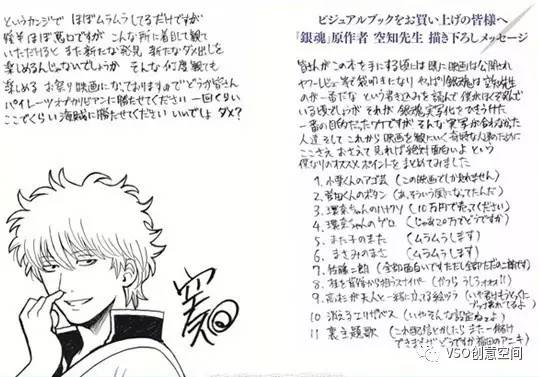 ビジュアルブックをお買い上げの皆様へ
『銀魂』原作者 空知先生 描き下ろしメッセージ
皆さんがこの本を手にする頃には 既に映画は公開され
ヤフーレビュー等で袋叩きになり やっぱり銀魂は
のが一番だな という書き込みを読んで 僕はほくそ笑んで
いる頃でしょうが それが 銀魂実写化を
一番の目的だったワケですが そんな実写が合わなかった
人達 そして これから映画を観にいく奇特な人達のために
ここさえ おさえて見れば絶対面白いよ という
僕なりのオススメポイントをまとめてみました
1. 小栗くんのアゴ芸 (この映画でしか見れません)
2. 菅田くんのボタン (あ、そういう風になってたんだ)
3. 環奈ちゃんのハナクソ (10万円で売ってください)
4. 環奈ちゃんのゲロ (じゃあ20万でどうですか)
5. また子のまた (ムラムラします)
6. まさみのまさみ (ムラムラします)
7. 佐藤二朗 (全部面白いです ただし全部ただの二朗です)
8. 桂を背後から狙うスナイパー (かつら うしろ)
9. 高杉が天人と一緒に
10. 消えるエリザベス (いやそんな設定ねーよ)
11 裏主題歌
というカンジで ほぼムラムラしてるだけですが
後半ほぼ悪口ですが こんな所に着目して観て
いただけると また新たな発見 新たなダメ出しを
楽しめるんじゃないでしょうか そんな 観ても
楽しめる お祭り映画になっておりますので どうか皆さん
パイレーツオブカリビアンに勝たせてください 一回くらい
ここでくらい海賊に勝たせてください いいでしょ ダメ?
空知
VSO创意空间